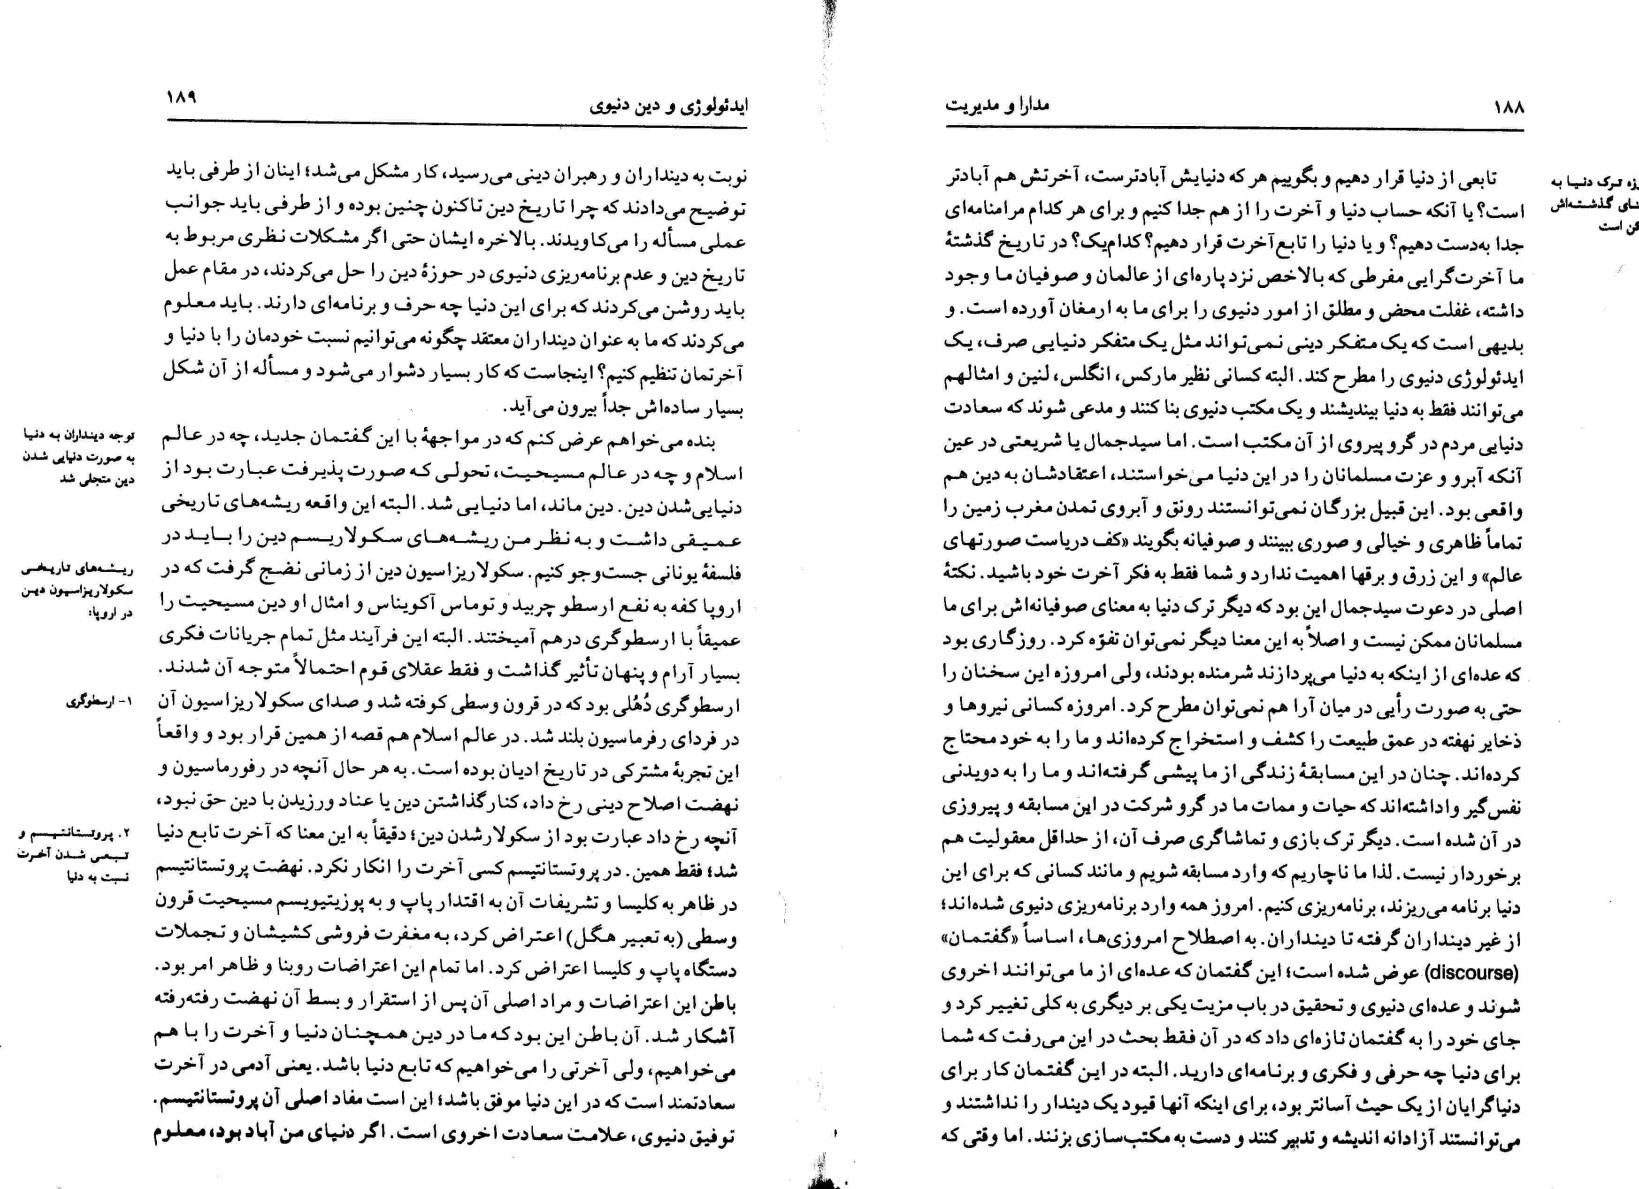 ۱۸۸
مدارا و مدیریت
تابعی از دنیا قرار دهیم و بگوییم هر که دنیایش آبادترست، آخرتش هم آبادتر
است؟ یا آنکه حساب دنیا و آخرت را از هم جدا کنیم و برای هر کدام مرامنامه‌ای
جدا به‌دست دهیم؟ و یا دنیا را تابع آخرت قرار دهیم؟ کدام‌یک؟ در تاریخ گذشتهٔ
ما آخرت‌گرایی مفرطی که بالاخص نزد پاره‌ای از عالمان و صوفیان ما وجود
داشته، غفلت محض و مطلق از امور دنیوی را برای ما به ارمغان آورده است. و
بدیهی است که یک متفکر دینی نمی‌تواند مثل یک متفکر دنیایی صرف، یک
ایدئولوژی دنیوی را مطرح کند. البته کسانی نظیر مارکس، انگلس، لنین و امثالهم
می‌توانند فقط به دنیا بیندیشند و یک مکتب دنیوی بنا کنند و مدعی شوند که سعادت
دنیایی مردم در گرو پیروی از آن مکتب است. اما سیدجمال یا شریعتی در عین
آنکه آبرو و عزت مسلمانان را در این دنیا می‌خواستند، اعتقادشان به دین هم
واقعی بود. این قبیل بزرگان نمی‌توانستند رونق و آبروی تمدن مغرب زمین را
تماماً ظاهری و خیالی و صوری ببینند و صوفیانه بگویند «کف دریاست صورتهای
عالم» و این زرق و برقها اهمیت ندارد و شما فقط به فکر آخرت خود باشید. نکتهٔ
اصلی در دعوت سیدجمال این بود که دیگر ترک دنیا به معنای صوفیانه‌اش برای ما
مسلمانان ممکن نیست و اصلاً به این معنا دیگر نمی‌توان تفوّه کرد. روزگاری بود
که عده‌ای از اینکه به دنیا می‌پردازند شرمنده بودند، ولی امروزه این سخنان را
حتی به صورت رأیی در میان آرا هم نمی‌توان مطرح کرد. امروزه کسانی نیروها و
ذخایر نهفته در عمق طبیعت را کشف و استخراج کرده‌اند و ما را به خود محتاج
کرده‌اند. چنان در این مسابقهٔ زندگی از ما پیشی گرفته‌اند و ما را به دویدنی
نفس‌گیر واداشته‌اند که حیات و ممات ما در گرو شرکت در این مسابقه و پیروزی
در آن شده است. دیگر ترک بازی و تماشاگری صرف آن، از حداقل معقولیت هم
برخوردار نیست. لذا ما ناچاریم که وارد مسابقه شویم و مانند کسانی که برای این
دنیا برنامه می‌ریزند، برنامه‌ریزی کنیم. امروز همه وارد برنامه‌ریزی دنیوی شده‌اند؛
از غیر دینداران گرفته تا دینداران. به اصطلاح امروزی‌ها، اساساً «گفتمان»
(discourse) عوض شده است؛ این گفتمان که عده‌ای از ما می‌توانند اخروی
شوند و عده‌ای دنیوی و تحقیق در باب مزیت یکی بر دیگری به کلی تغییر کرد و
جای خود را به گفتمان تازه‌ای داد که در آن فقط بحث در این می‌رفت که شما
برای دنیا چه حرفی و فکری و برنامه‌ای دارید. البته در این گفتمان کار برای
دنیاگرایان از یک حیث آسانتر بود، برای اینکه آنها قیود یک دیندار را نداشتند و
می‌توانستند آزادانه اندیشه و تدبیر کنند و دست به مکتب‌سازی بزنند. اما وقتی که
ترک دنیا به
گذشته‌اش
است
ایدئولوژی و دین دنیوی
۱۸۹
نوبت به دینداران و رهبران دینی می‌رسید، کار مشکل می‌شد؛ اینان از طرفی باید
توضیح می‌دادند که چرا تاریخ دین تاکنون چنین بوده و از طرفی باید جوانب
عملی مسأله را می‌کاویدند. بالاخره ایشان حتی اگر مشکلات نظری مربوط به
تاریخ دین و عدم برنامه‌ریزی دنیوی در حوزهٔ دین را حل می‌کردند، در مقام عمل
باید روشن می‌کردند که برای این دنیا چه حرف و برنامه‌ای دارند. باید معلوم
می‌کردند که ما به عنوان دینداران معتقد چگونه می‌توانیم نسبت خودمان را با دنیا و
آخرتمان تنظیم کنیم؟ اینجاست که کار بسیار دشوار می‌شود و مسأله از آن شکل
بسیار ساده‌اش جداً بیرون می‌آید.
بنده می‌خواهم عرض کنم که در مواجههٔ با این گفتمان جدید، چه در عالم
اسلام و چه در عالم مسیحیت، تحولی که صورت پذیرفت عبارت بود از
دنیایی‌شدن دین. دین ماند، اما دنیایی شد. البته این واقعه ریشه‌های تاریخی
عمیقی داشت و به نظر من ریشه‌های سکولاریسم دین را باید در
فلسفهٔ یونانی جست‌وجو کنیم. سکولاریزاسیون دین از زمانی نضج گرفت که در
اروپا کفه به نفع ارسطو چربید و توماس آکویناس و امثال او دین مسیحیت را
عمیقاً با ارسطوگری درهم آمیختند. البته این فرآیند مثل تمام جریانات فکری
بسیار آرام و پنهان تأثیر گذاشت و فقط عقلای قوم احتمالاً متوجه آن شدند.
ارسطوگری دُهُلی بود که در قرون وسطی کوفته شد و صدای سکولاریزاسیون آن
در فردای رفرماسیون بلند شد. در عالم اسلام هم قصه از همین قرار بود و واقعاً
این تجربهٔ مشترکی در تاریخ ادیان بوده است. به هر حال آنچه در رفورماسیون و
نهضت اصلاح دینی رخ داد، کنارگذاشتن دین یا عناد ورزیدن با دین حق نبود،
آنچه رخ داد عبارت بود از سکولارشدن دین؛ دقیقاً به این معنا که آخرت تابع دنیا
شد؛ فقط همین. در پروتستانتیسم کسی آخرت را انکار نکرد. نهضت پروتستانتیسم
در ظاهر به کلیسا و تشریفات آن به اقتدار پاپ و به پوزیتیویسم مسیحیت قرون
وسطی (به تعبیر هگل) اعتراض کرد، به مغفرت فروشی کشیشان و تجملات
دستگاه پاپ و کلیسا اعتراض کرد. اما تمام این اعتراضات روبنا و ظاهر امر بود.
باطن این اعتراضات و مراد اصلی آن پس از استقرار و بسط آن نهضت رفته‌رفته
آشکار شد. آن باطن این بود که ما در دین همچنان دنیا و آخرت را با هم
می‌خواهیم، ولی آخرتی را می‌خواهیم که تابع دنیا باشد. یعنی آدمی در آخرت
سعادتمند است که در این دنیا موفق باشد؛ این است مفاد اصلی آن پروتستانتیسم.
توفیق دنیوی، علامت سعادت اخروی است. اگر دنیای من آباد بود، معلوم
توجه دینداران به دنیا
به صورت دنیایی شدن
دین متجلی شد
ریشه‌های تاریخی
سکولاریزاسیون دین
در اروپا:
۱- ارسطوگری
۲. پروتستانتیسم و
تبعی شدن آخرت
نسبت به دنیا